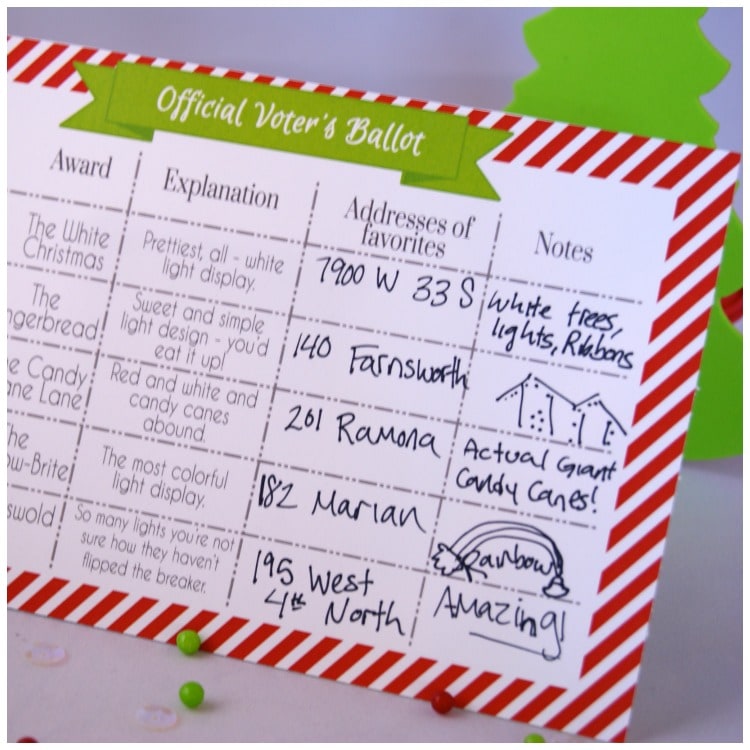 Official Voter's Ballot
Award
Explanation
Addresses of
favorites
Notes
The White
Christmas
Prettiest, all - white
light display.
7900 W 33 S
White trees,
lights, Ribbons
The
ngerbread
Sweet and simple
light design - you'd
eat it up!
140 Farnsworth
e Candy
ane Lane
Red and white and
candy canes
abound.
201 Ramona
Actual Giant
Candy Canes!
he
ow-Brite
The most colorful
light display.
182 Marian
Rainbow
swold
So many lights you're not
sure how they haven't
flipped the breaker.
195 West
4th North
Amazing!